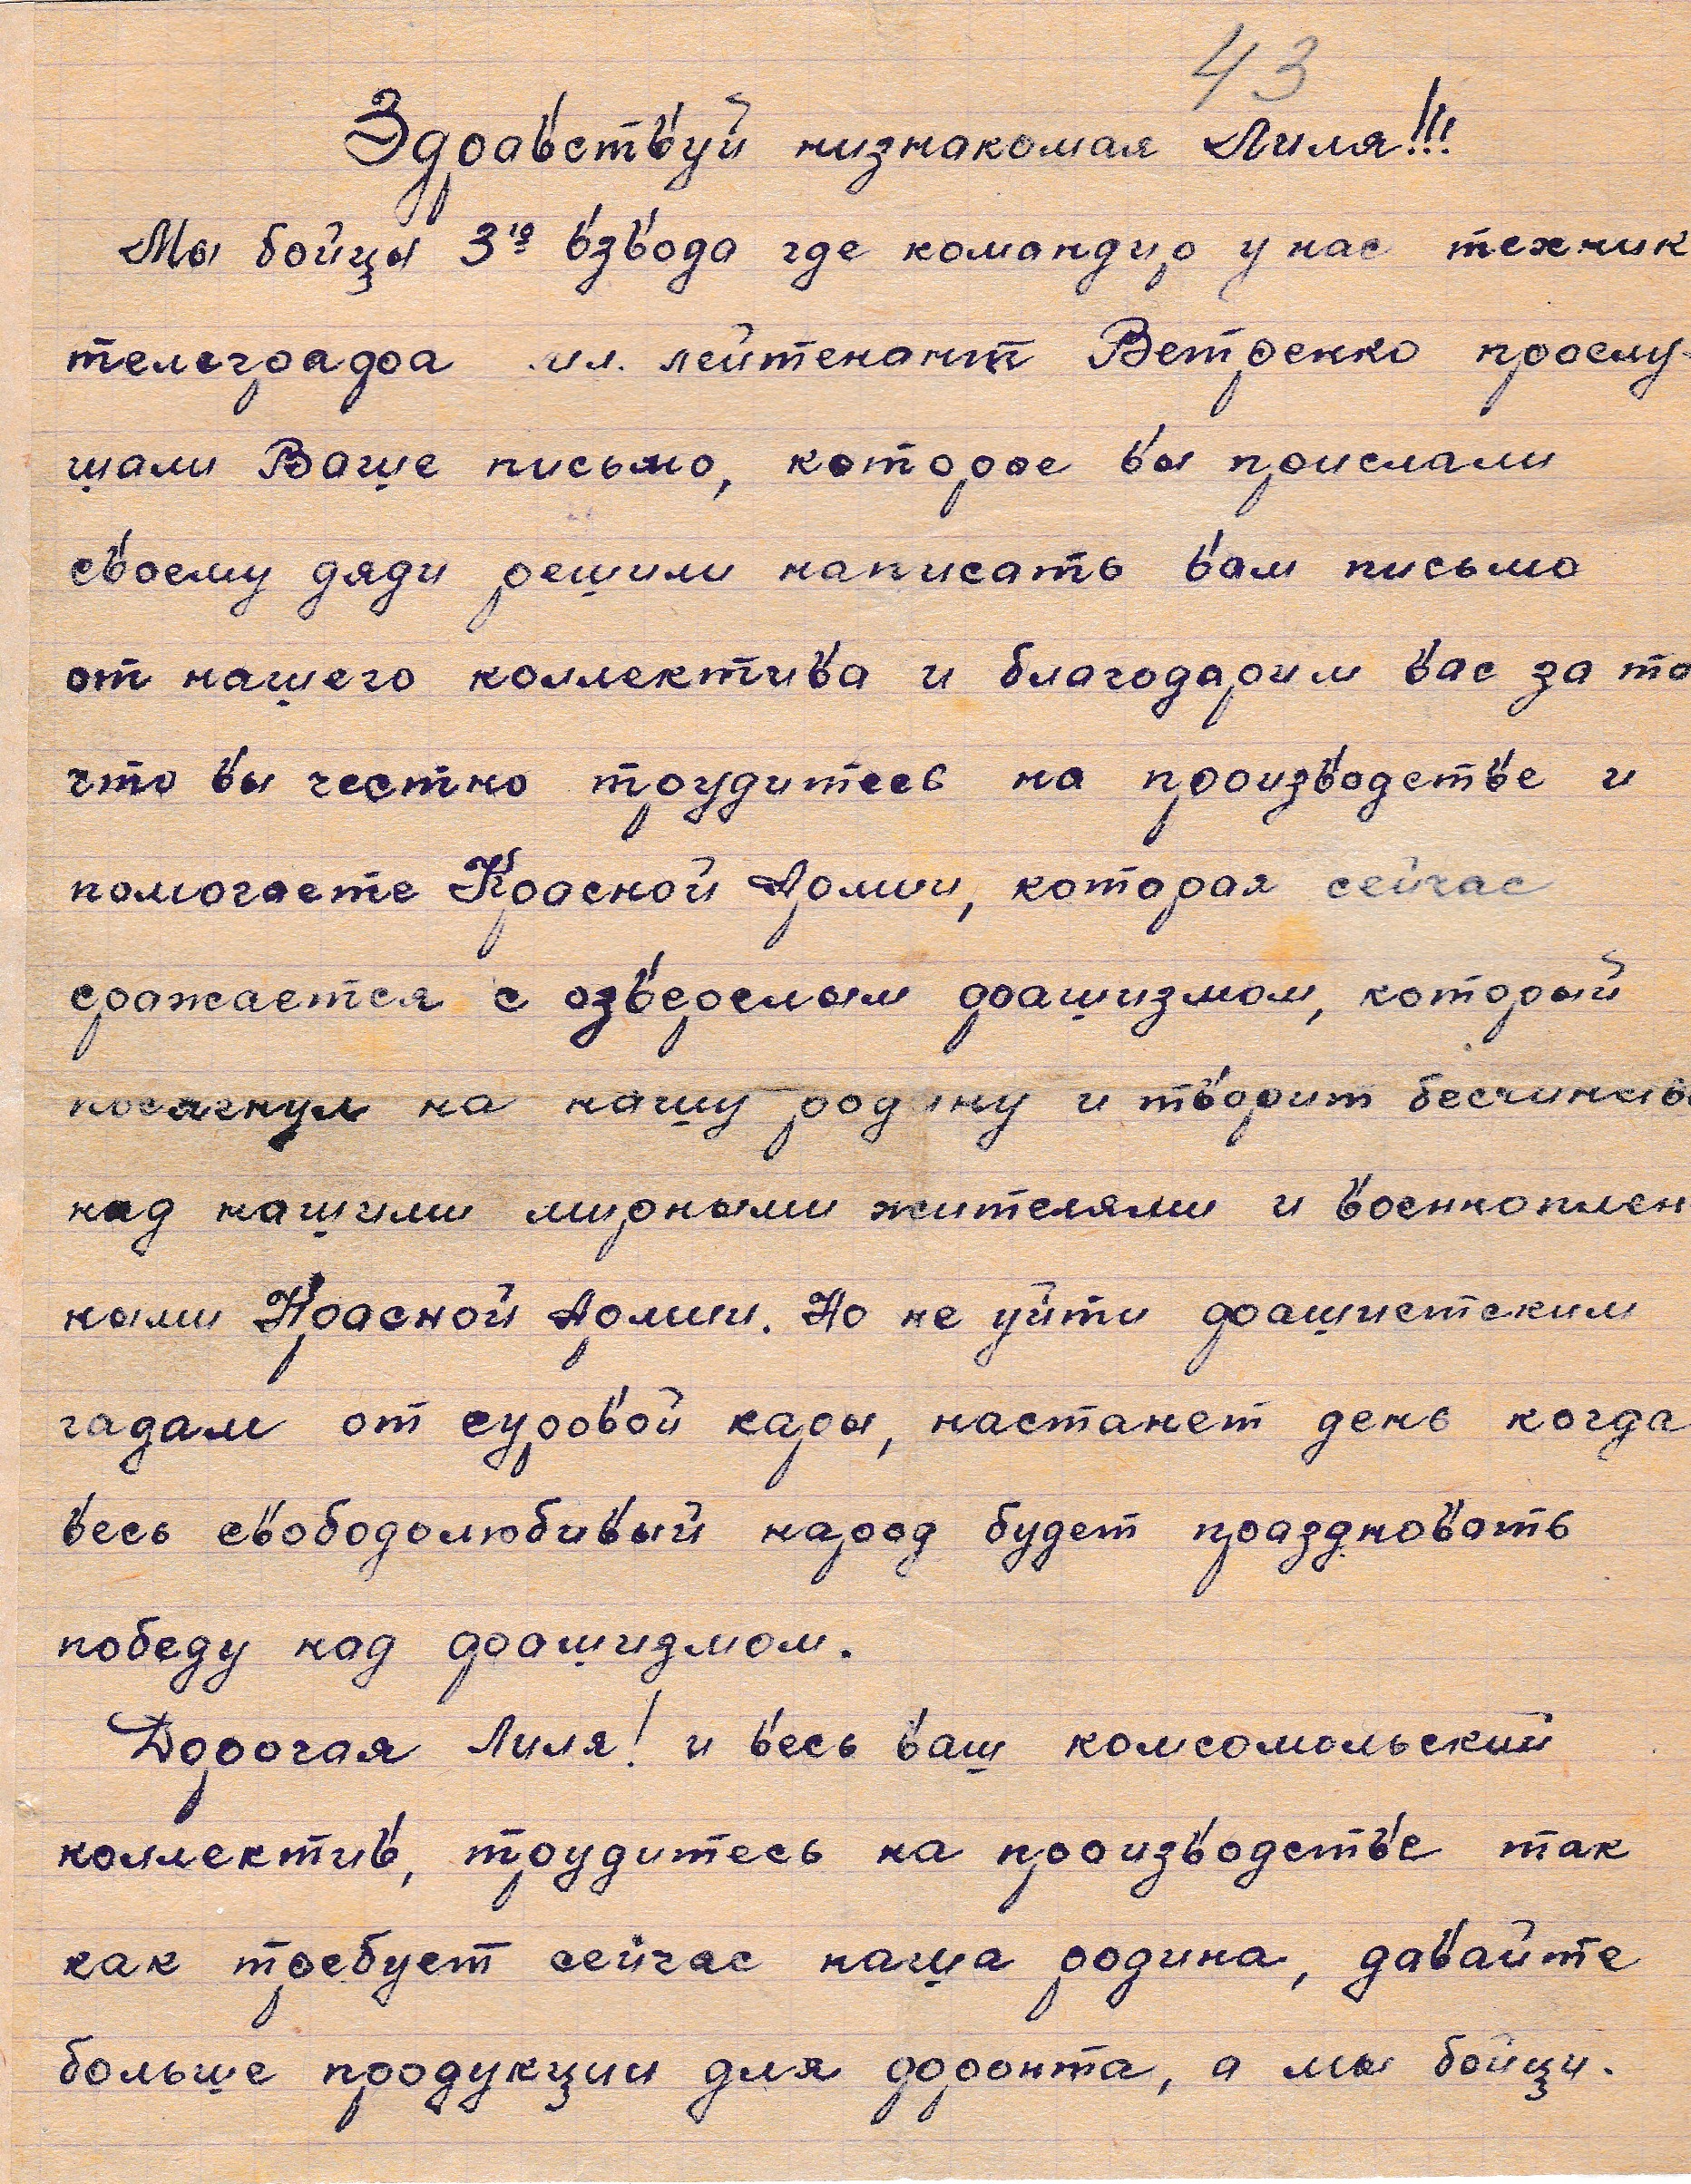 43
Здравствуй низнакомая Лиля!!!
Мы бойцы 3го взвода где командир у нас техник
телеграфа мл. лейтенант Ветренко прослу-
шали Ваше письмо, которое вы прислали
своему дяди решили написать вам письмо
от нашего коллектива и благодарим вас за то
что вы честно трудитесь на производстве и
помогаете Красной Армии, которая сейчас
сражается с озверелым фашизмом, который
посягнул на нашу родину и творит бесчинства
над нашими мирными жителями и военноплен
ными Красной Армии. Но не уйти фашистским
гадам от суровой кары, настанет день когда
весь свободолюбивый народ будет праздновать
победу над фашизмом.
Дорогая Лиля! и весь ваш комсомольский
коллектив, трудитесь на производстве так
как требует сейчас наша родина, давайте
больше продукции для фронта, а мы бойци.